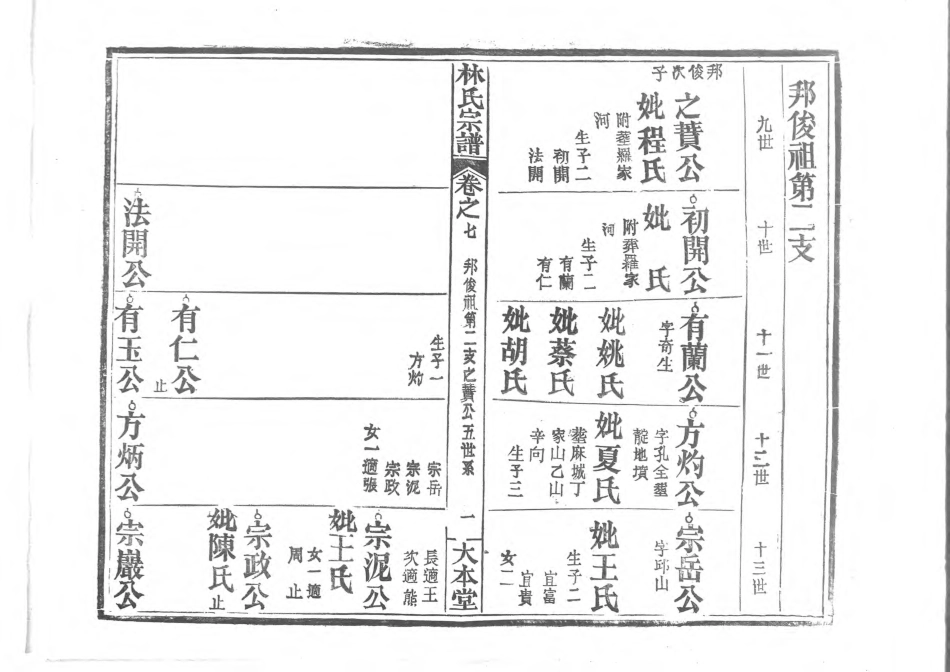 邦俊祖第二支
九世
十世
十一世
十二世
十三世
邦俊次子
之蕡公
妣程氏
附葬羅家
河
生子二
初開
法開
初開公
妣 氏
附葬羅家
河
生子二
有蘭
有仁
有蘭公
字奇生
妣姚氏
妣蔡氏
妣胡氏
方灼公
字孔全葬
靛地墳
妣夏氏
葬麻城丁
家山乙山
辛向
生子三
宗岳公
字邱山
妣王氏
生子二
宜富
宜貴
女二
林氏宗譜
卷之七
邦俊祖第二支之蕡公五世系
一
大本堂
生子一
方灼
宗岳
宗泥
宗政
女一適張
長適王
次適熊
宗泥公
妣王氏
女一適
周 止
宗政公
妣陳氏
止
有仁公
止
法開公
有玉公
方炳公
宗巖公